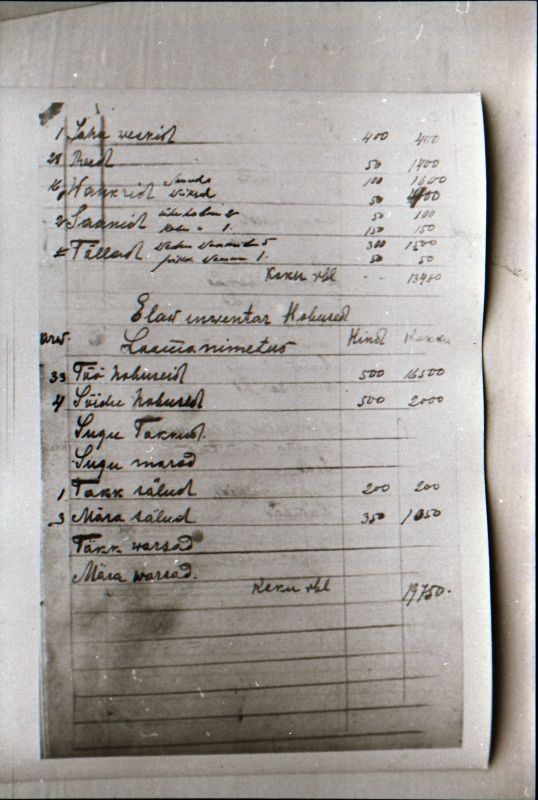 1 Saha veskid 400 400
28 Reed 50 1400
16 Wankrid Suured 100 1600
Väiksed 50
2 Saanid ühe hobu 2 50 100
kahe " 1. 150 150
Tõllad 5 300 1500
pikk 1. 50 50
Kokku rbl - - 13400
Elav inventar Hobused
Arv. Looma nimetus Hind Kokku
33 Töö hobuseid 500 16500
4 Sõidu hobused 500 2000
Sugu Täkkud.
Sugu marad
1 Täkk sälud 200 200
3 Mära sälud 350 1050
Täkk warsad
Mära warsad.
Kokku rbl 19750.